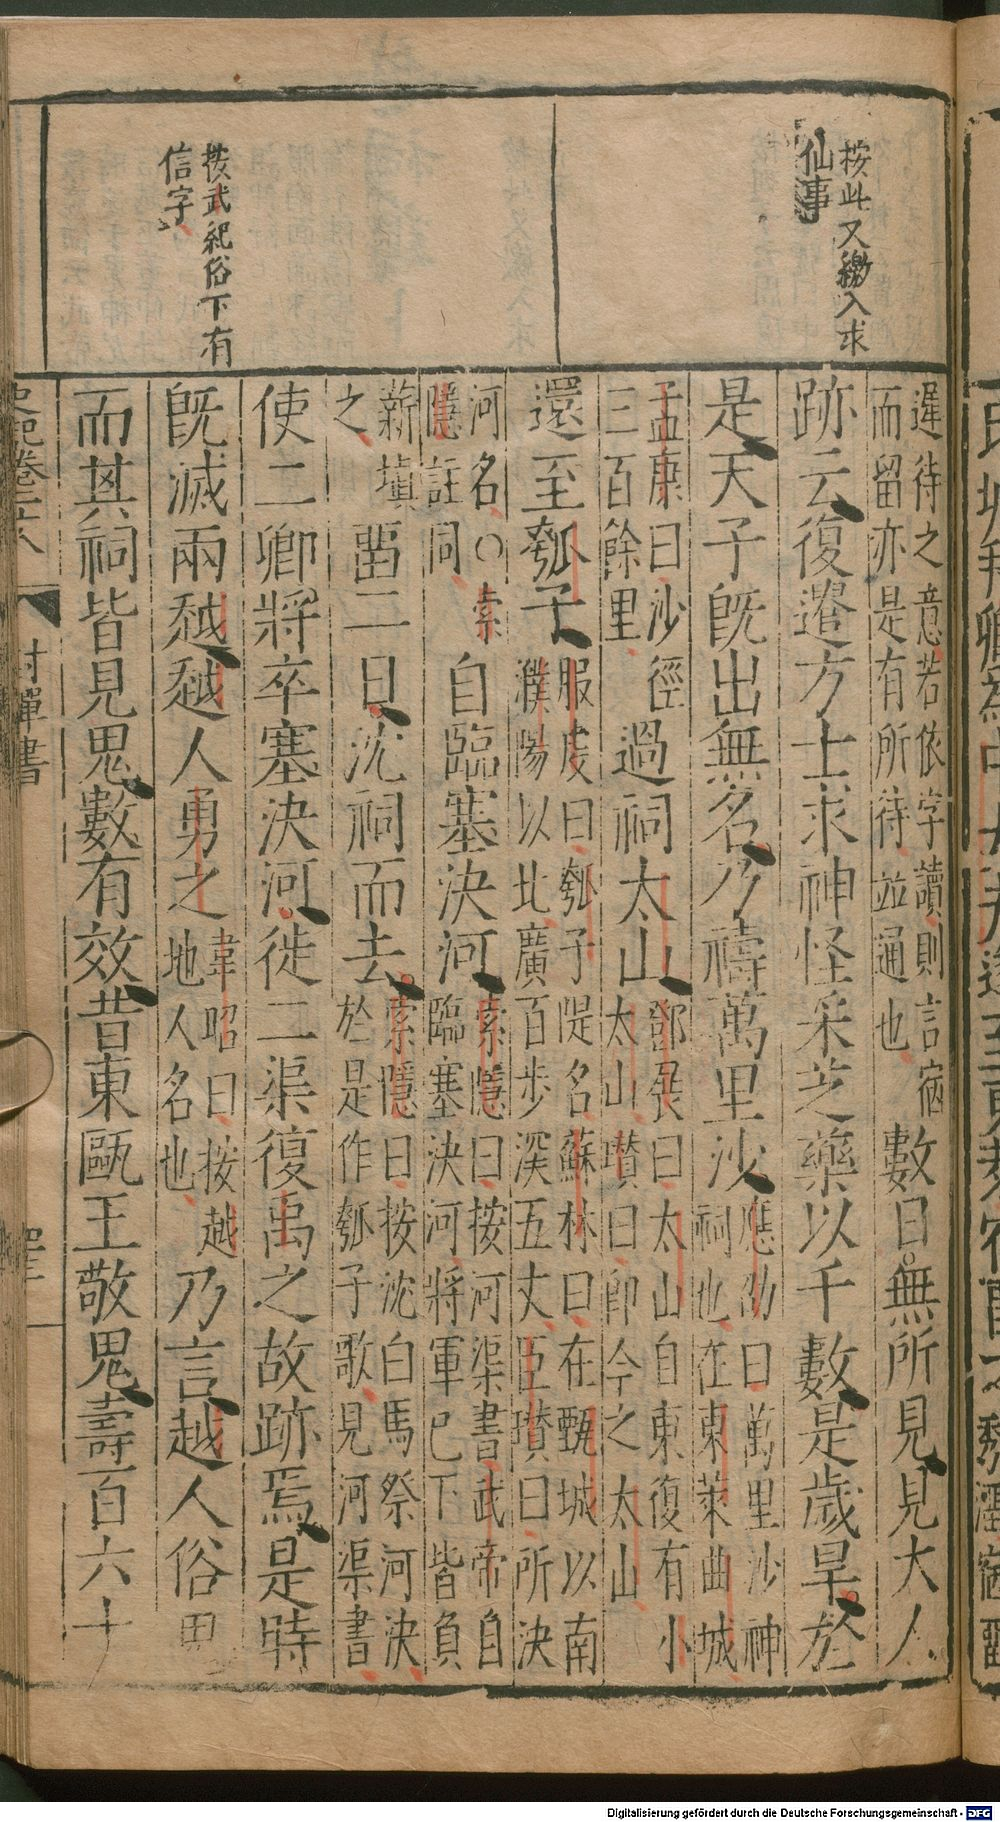 按此又繳入求
仙事
按武紀俗下有
信字
遲待之意若依字讀則言宿
而留亦是有所待並通也
數日無所見見大人
跡云復遣方士求神怪采芝藥以千數是歲旱於
是天子旣出無名乃禱萬里沙
應劭曰萬里沙神
祠也在東萊曲城
孟康曰沙徑
三百餘里
過祠太山
鄧展曰太山自東復有小
太山瓚曰卽今之太山
還至瓠子
服虔曰瓠子隄名蘇林曰在甄城以南
濮陽以北廣百步深五丈臣瓚曰所決
河名〇索
隱註同
自臨塞決河
索隱曰按河渠書武帝自
臨塞決河將軍已下皆負
薪塡
之
畱二日沈祠而去
索隱曰按沈白馬祭河決
於是作瓠子歌見河渠書
使二卿將卒塞決河徙二渠復禹之故跡焉是時
旣滅兩越越人勇之
韋昭曰按越
地人名也
乃言越人俗鬼
而其祠皆見鬼數有效昔東甌王敬鬼壽百六十
封禪書
Digitalisierung gefördert durch die Deutsche Forschungsgemeinschaft - DFG